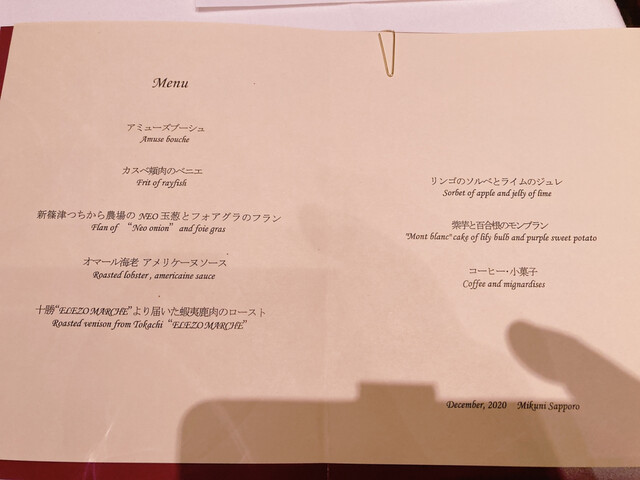 Menu
アミューズブーシュ
Amuse bouche
カスベ頬肉のベニエ
Frit of rayfish
新篠津つちから農場の NEO 玉葱とフォアグラのフラン
Flan of “Neo onion” and foie gras
オマール海老 アメリケーヌソース
Roasted lobster , americaine sauce
十勝“ELEZO MARCHE”より届いた蝦夷鹿肉のロースト
Roasted venison from Tokachi “ELEZO MARCHE”
リンゴのソルベとライムのジュレ
Sorbet of apple and jelly of lime
紫芋と百合根のモンブラン
"Mont blanc" cake of lily bulb and purple sweet potato
コーヒー・小菓子
Coffee and mignardises
December, 2020 Mikuni Sapporo